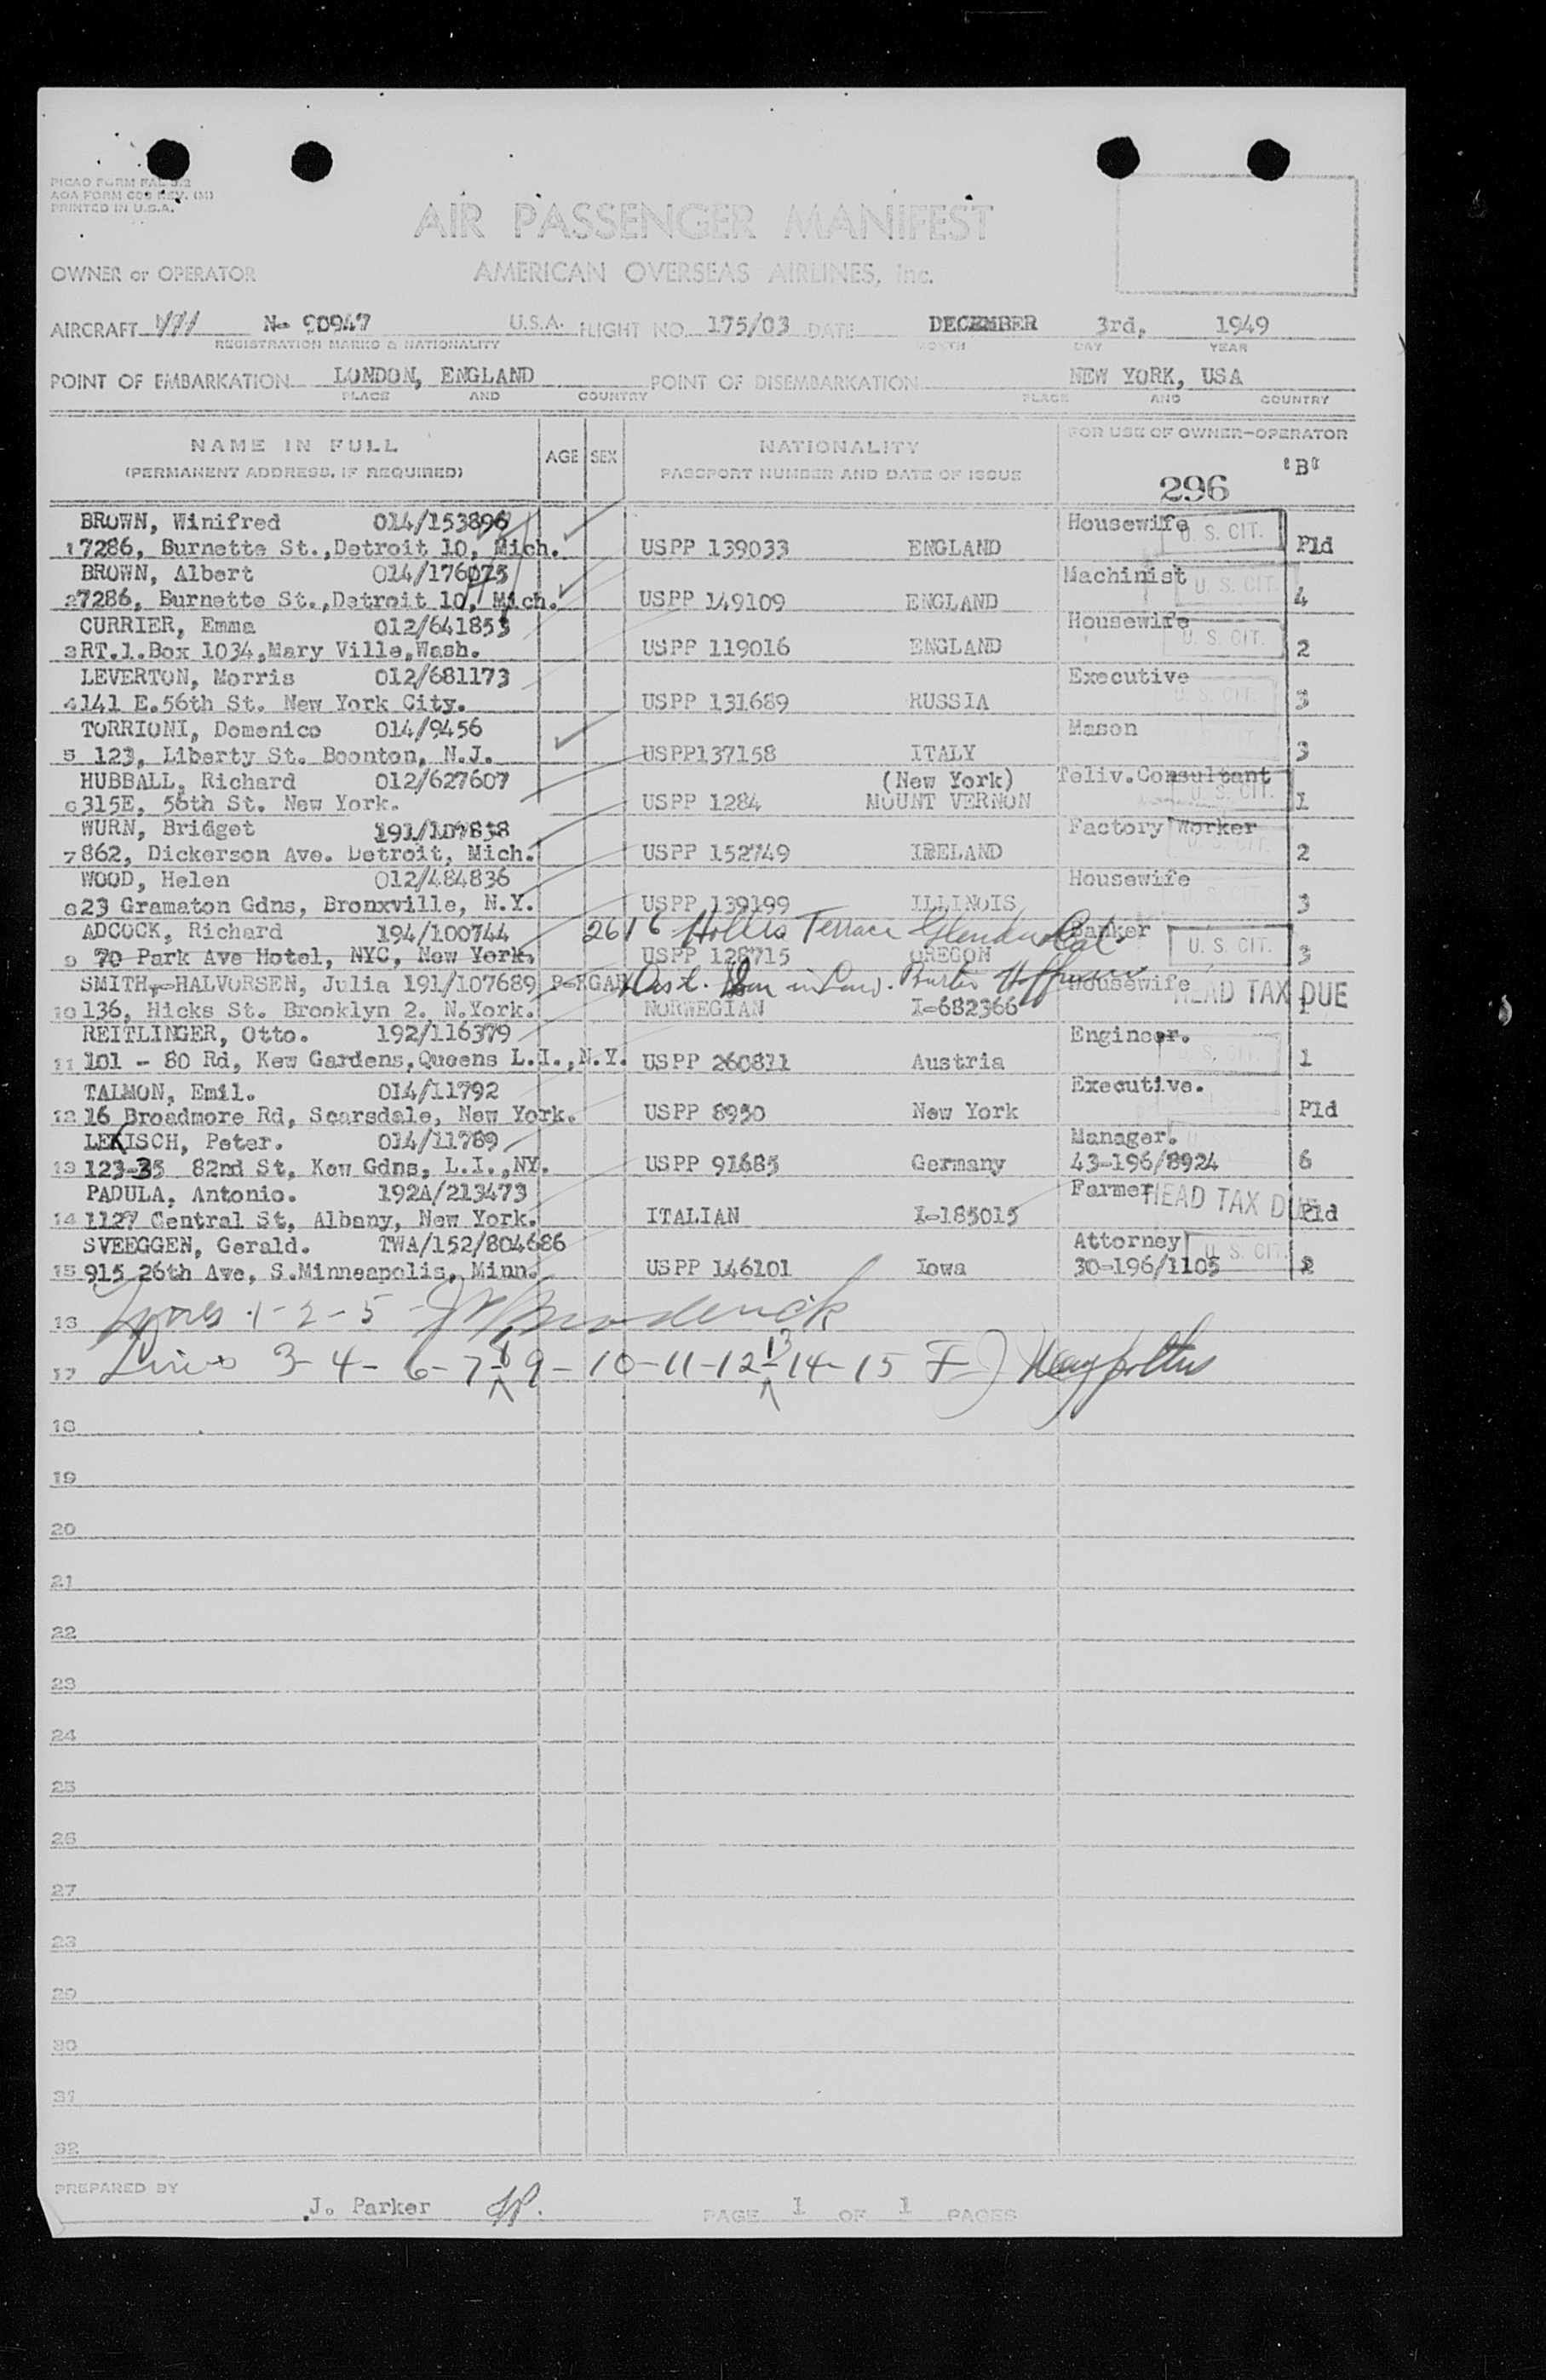 PICAO FORM FAL 3.2
AOA FORM REV.
PRINTED IN U.S.A.
AIR PASSENGER MANIFEST
OWNER or OPERATOR AMERICAN OVERSEAS AIRLINES, Inc.
AIRCRAFT No 90947 U.S.A. FLIGHT NO. 175/03 DATE DECEMBER 3rd, 1949
REGISTRATION MARKS & NATIONALITY MONTH DAY YEAR
POINT OF EMBARKATION LONDON, ENGLAND POINT OF DISEMBARKATION NEW YORK, USA
PLACE AND COUNTRY PLACE AND COUNTRY
NAME IN FULL AGE SEX NATIONALITY FOR USE OF OWNER-OPERATOR
(PERMANENT ADDRESS, IF REQUIRED) PASSPORT NUMBER AND DATE OF ISSUE "B"
296
BROWN, Winifred 014/153896 Housewife U. S. CIT.
1 7286, Burnette St.,Detroit 10, Mich. USPP 139033 ENGLAND Pld
BROWN, Albert 014/176075 Machinist U. S. CIT.
2 7286, Burnette St.,Detroit 10, Mich. USPP 149109 ENGLAND 4
CURRIER, Emma 012/641853 Housewife U. S. CIT.
3 RT.1.Box 1034,Mary Ville,Wash. USPP 119016 ENGLAND 2
LEVERTON, Morris 012/681173 Executive U. S. CIT.
4 141 E.56th St. New York City. USPP 131689 RUSSIA 3
TORRIONI, Domenico 014/9456 Mason
5 123, Liberty St. Boonton, N.J. USPP137158 ITALY 3
HUBBALL, Richard 012/627607 (New York) Teliv.Consultant U. S. CIT.
6 315E, 56th St. New York. USPP 1284 MOUNT VERNON 1
WURN, Bridget 191/107838 Factory Worker
7 862, Dickerson Ave. Detroit, Mich. USPP 152749 IRELAND U. S. CIT. 2
WOOD, Helen 012/484836 Housewife
8 23 Gramaton Gdns, Bronxville, N.Y. USPP 139199 ILLINOIS 3
ADCOCK, Richard 194/100744 2616 Hollis Terrace Glendale Cal. Banker
9 70 Park Ave Hotel, NYC, New York. USPP 128715 OREGON U. S. CIT. 3
SMITH-HALVORSEN, Julia 191/107689 in Law. Housewife HEAD TAX DUE
10 136, Hicks St. Brooklyn 2. N.York. NORWEGIAN I-682366 1
REITLINGER, Otto. 192/116379 Engineer.
11 101 - 80 Rd, Kew Gardens,Queens L.I.,N.Y. USPP 260811 Austria U. S. CIT. 1
TALMON, Emil. 014/11792 Executive.
12 16 Broadmore Rd, Scarsdale, New York. USPP 8950 New York Pld
LEKISCH, Peter. 014/11789 Manager.
13 123-35 82nd St, Kew Gdns, L.I.,NY. USPP 91685 Germany 43-196/8924 6
PADULA, Antonio. 192A/213473 Farmer HEAD TAX DUE
14 1127 Central St, Albany, New York. ITALIAN I-185015 Pld
SVEEGGEN, Gerald. TWA/152/804686 Attorney U. S. CIT.
15 915 26th Ave, S.Minneapolis, Minn. USPP 146101 Iowa 30-196/1105 2
16 Lines 1-2-5 Broderick
17 Lines 3-4-6-7-8-9-10-11-12-13-14-15
18
19
20
21
22
23
24
25
26
27
28
29
30
31
32
PREPARED BY J. Parker JP. PAGE 1 OF 1 PAGES